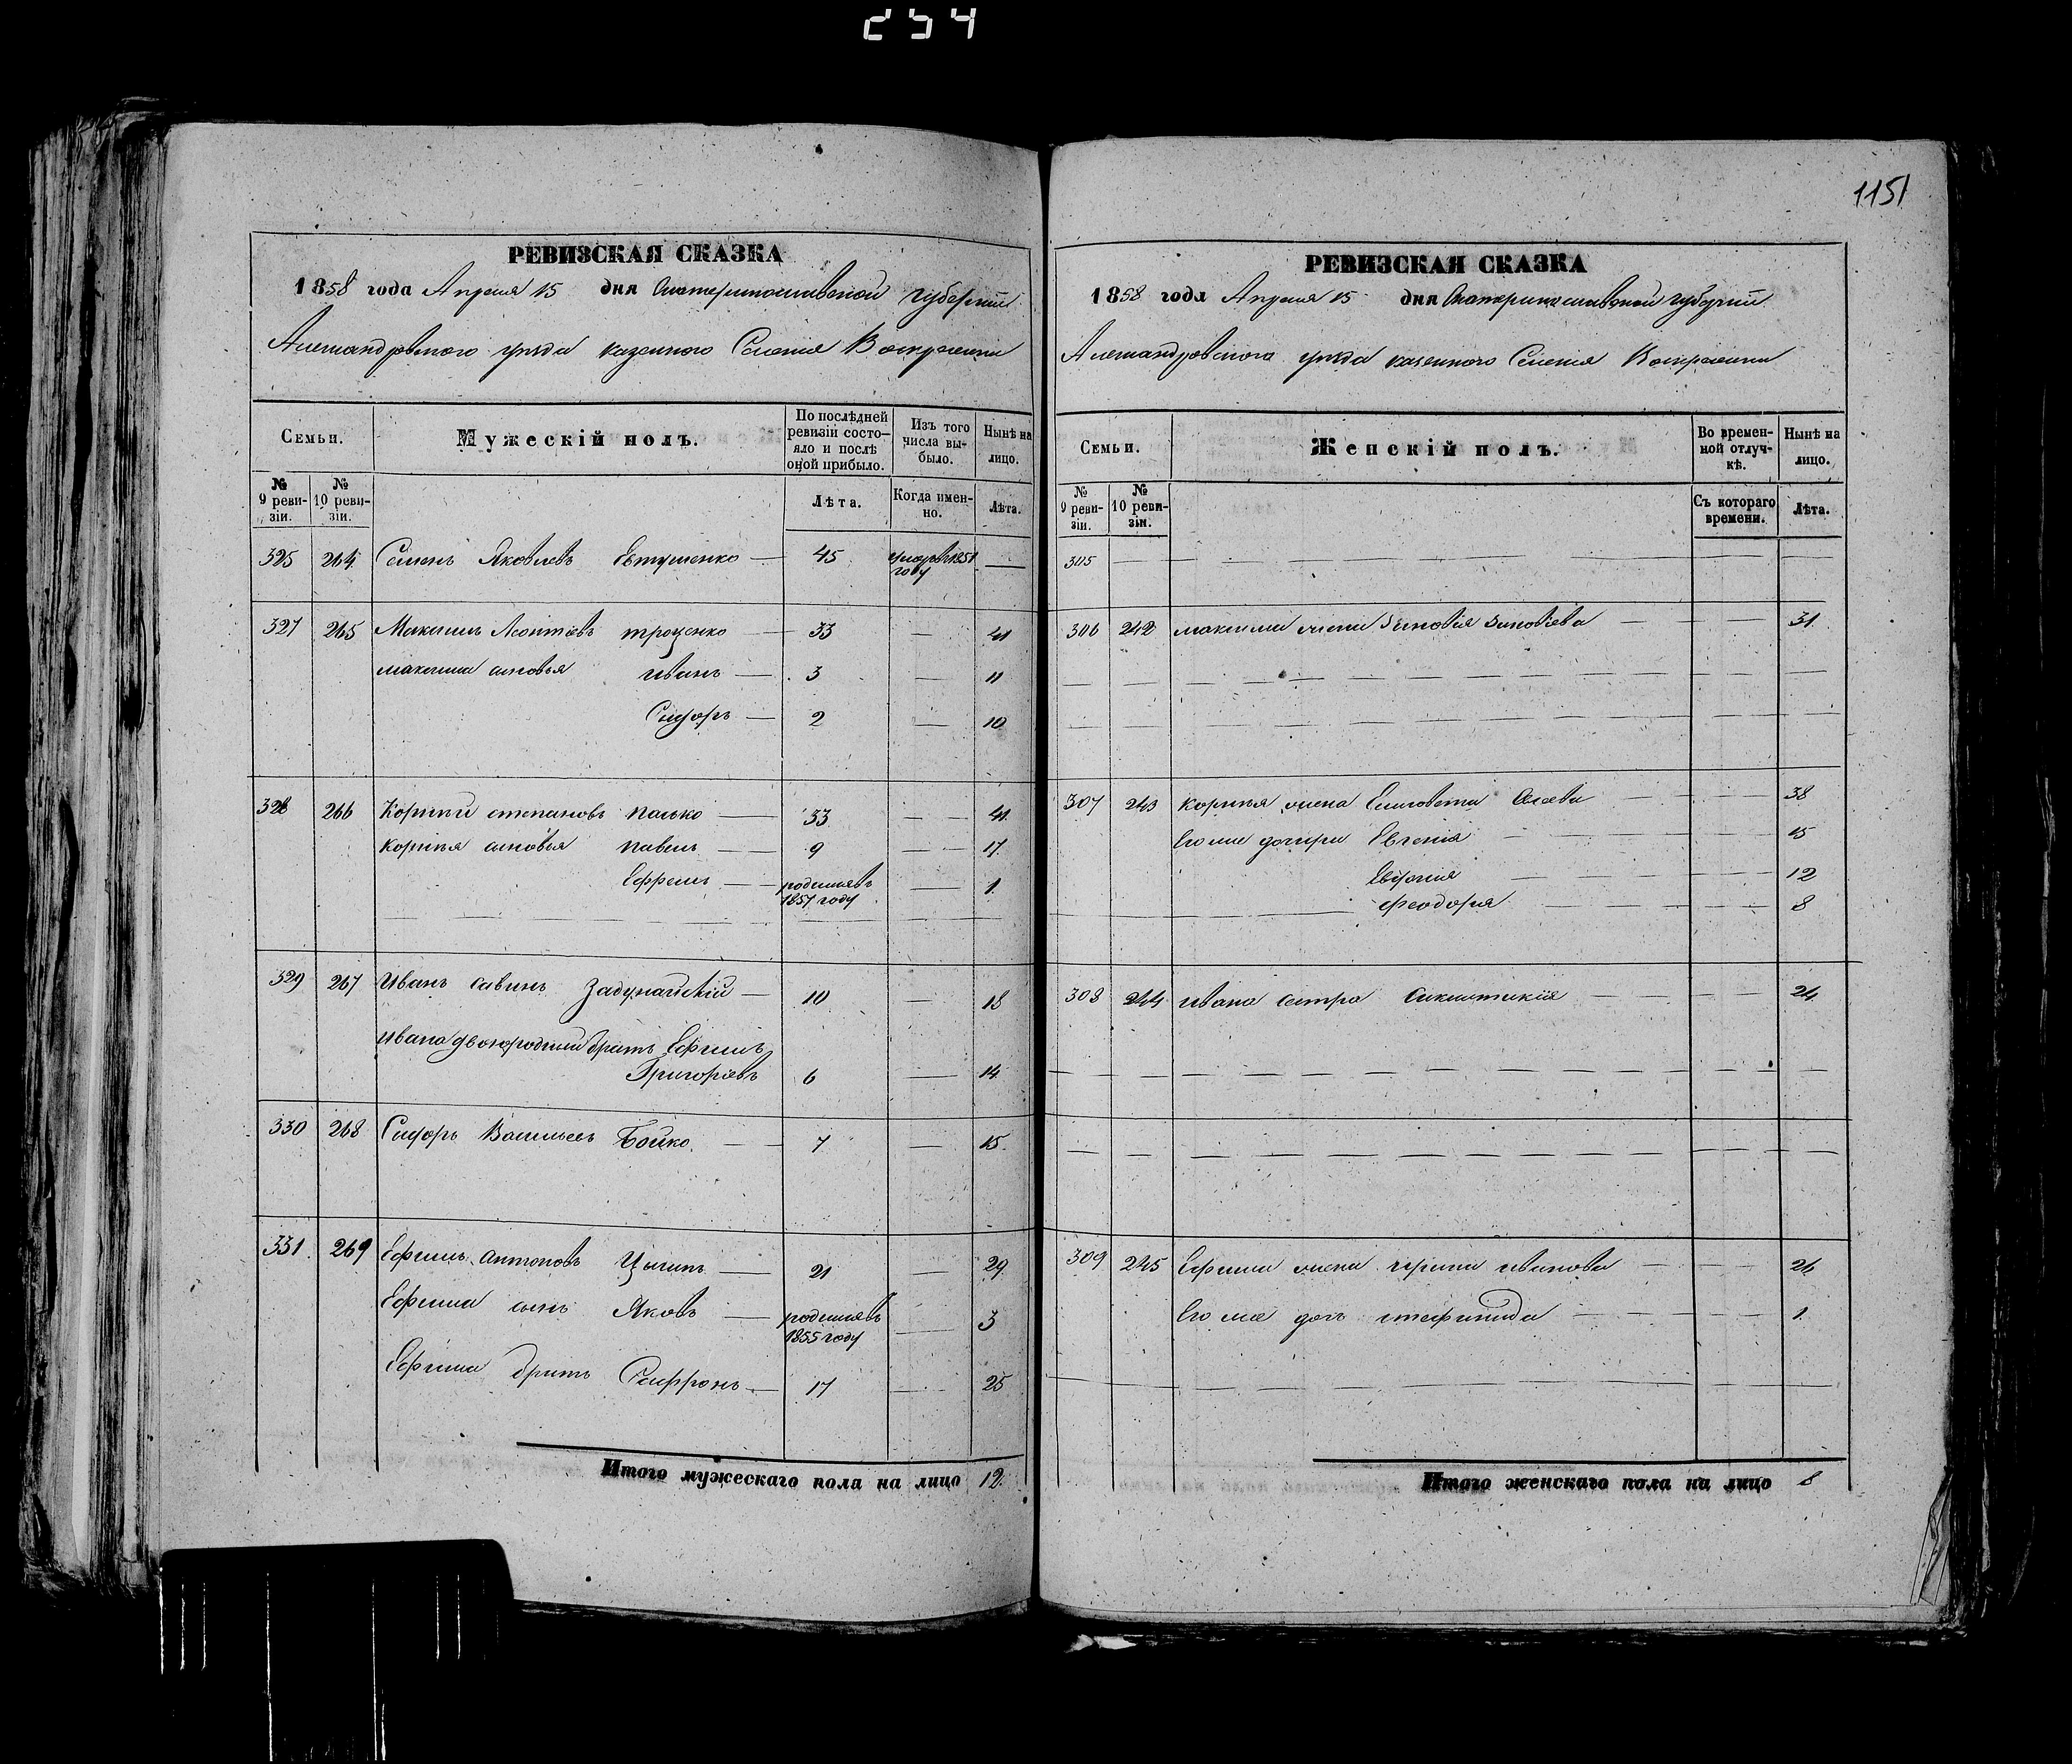 254
1151
РЕВИЗСКАЯ СКАЗКА
1858 года Апреля 15 дня Екатеринославской губернии
Александровского уезда казенного Селения Воскресенки
Семьи. Мужескій полъ. По послѣдней ревизіи состояло и послѣ оной прибыло. Изъ того числа выбыло. Нынѣ на лицо.
№ 9 ревизіи. № 10 ревизіи. Лѣта. Когда именно. Лѣта.
325 264 Семенъ Яковлевъ Евтушенко — 45 умеръ 1851 году —
327 265 Максимъ Леонтіевъ троценко — 33 — 41
максима сыновья иванъ — 3 — 11
Сидоръ — 2 — 10
328 266 Корнѣй степановъ палько — 33 — 41
корнѣя сыновья павелъ — 9 — 17
Ефремъ — родился въ 1857 году — 1
329 267 Иванъ савинъ Задунайскій — 10 — 18
ивана двоюродный братъ Ефимъ
Григоріевъ 6 — 14
330 268 Сидоръ Васильевъ Бойко — 7 — 15
331 269 Ефимъ антоновъ Цыганъ — 21 — 29
Ефима сынъ Яковъ — родился въ 1855 году — 3
Ефима братъ Сафронъ — 17 — 25
Итого мужескаго пола на лицо 12
РЕВИЗСКАЯ СКАЗКА
1858 года Апреля 15 дня Екатеринославской губернии
Александровского уезда казенного Селения Воскресенки
Семьи. Женскій полъ. Во временной отлучкѣ. Нынѣ на лицо.
№ 9 ревизіи. № 10 ревизіи. Съ котораго времени. Лѣта.
305 — — — —
306 242 максима жена Зиновія Зиновіева — — 31
307 243 корнѣя жена Елисовета — — 38
Его же дочери Евгенія — — 15
Евдокия — — 12
Феодора — — 8
308 244 ивана сестра — — 24
309 245 Ефима жена ирина иванова — — 26
Его же дочь степанида — — 1
Итого женскаго пола на лицо 8